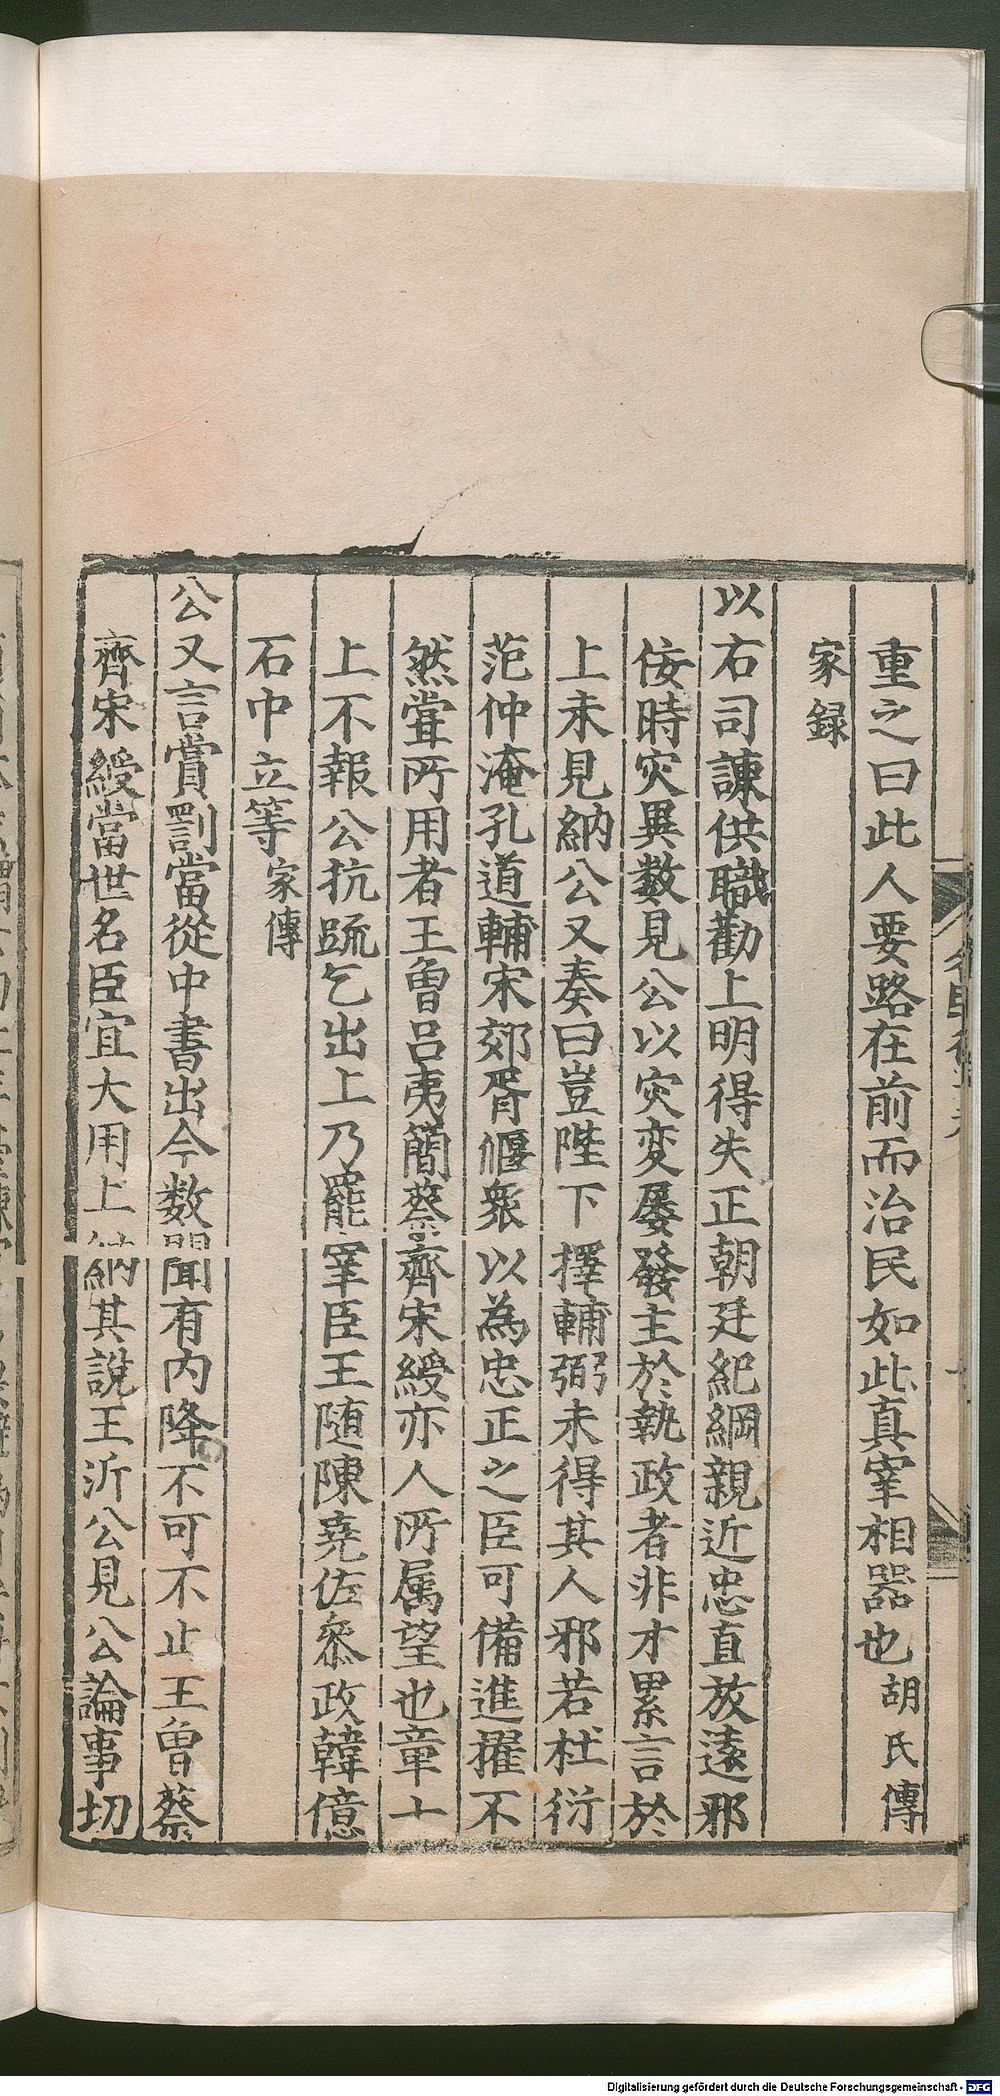 重之曰此人要路在前而治民如此真宰相噐也胡氏傳
家録
以右司諫供職勸上明得失正朝廷紀綱親近忠直放逺邪
佞時灾異数見公以灾变屡發主於執政者非才累言於
上未見納公又奏曰豈陛下擇輔弼未得其人邪若杜衍
范仲淹孔道輔宋郊胥偃衆以為忠正之臣可備進擢不
然甞所用者王曾吕夷簡蔡齊宋綬亦人所属望也章十
上不報公抗䟽乞出上乃罷宰臣王随陳堯佐叅政韓億
石中立等家傳
公又言賞罰當從中書出今数聞有内降不可不止王曾蔡
齊宋綬當世名臣宜大用上納其說王沂公見公論事切
Digitalisierung gefördert durch die Deutsche Forschungsgemeinschaft - DFG